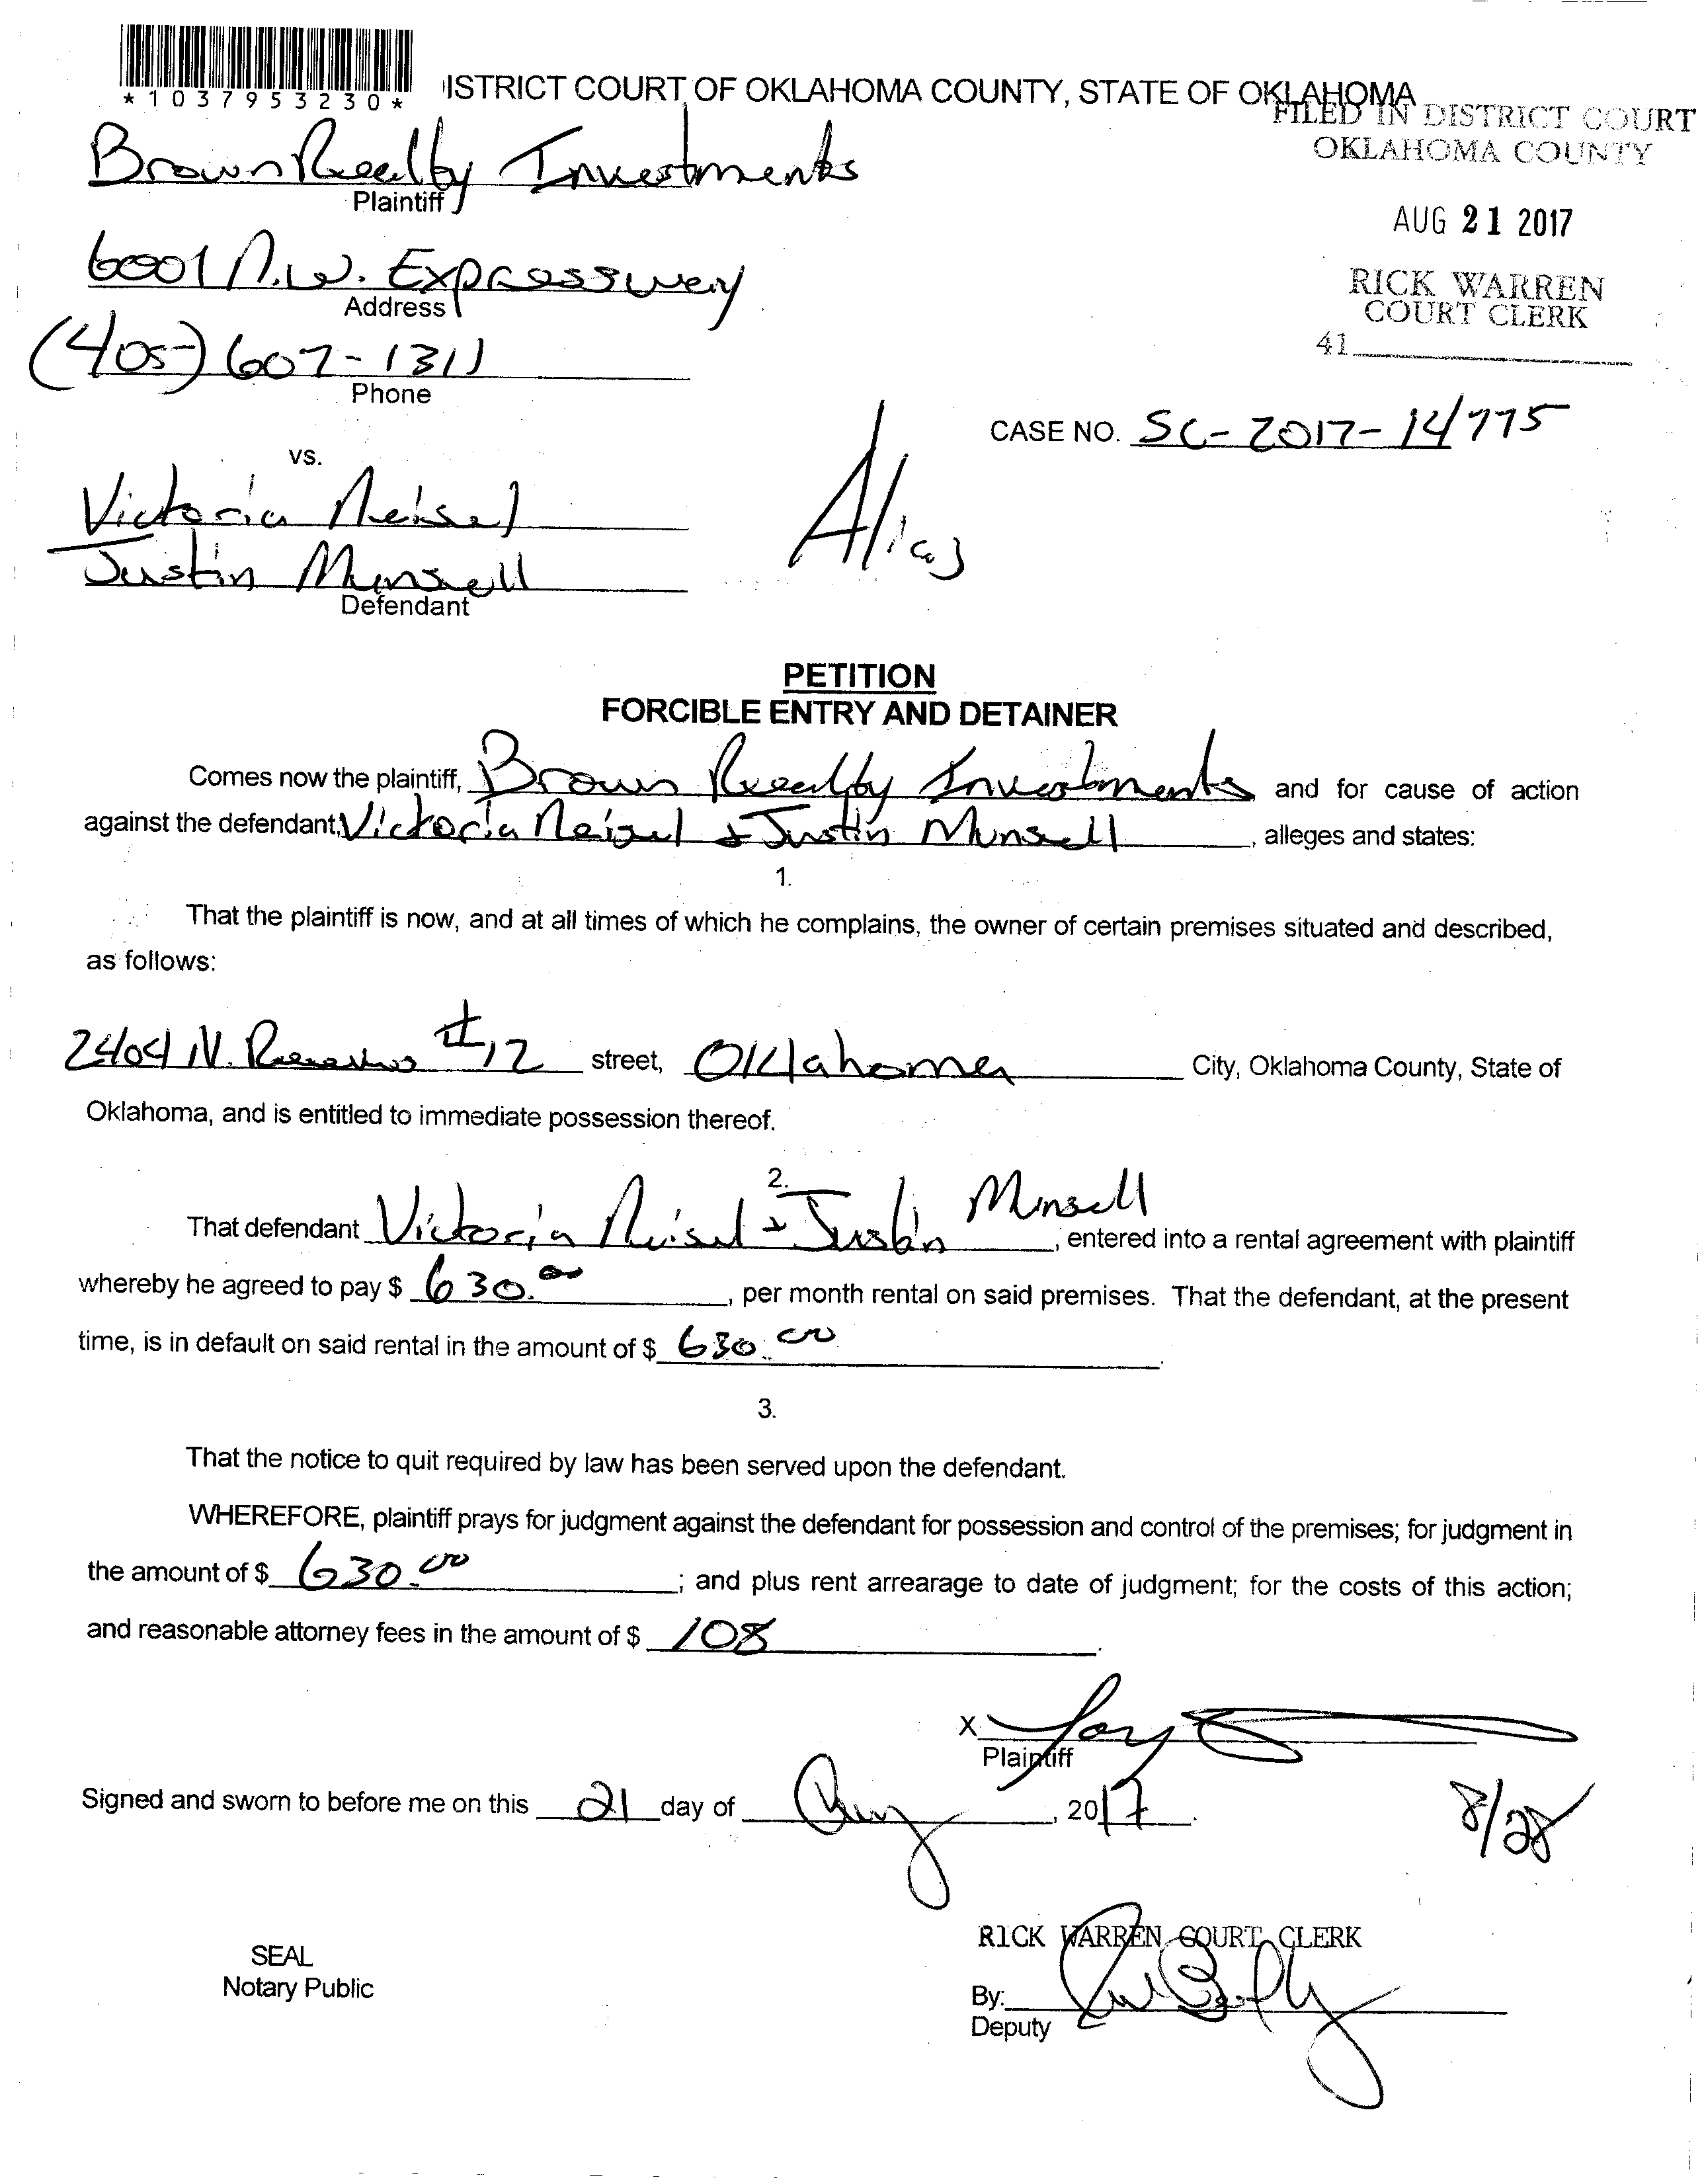 *1037953230*
ISTRICT COURT OF OKLAHOMA COUNTY, STATE OF OKLAHOMA
FILED IN DISTRICT COURT
OKLAHOMA COUNTY
Brown Realty Investments
Plaintiff
AUG 21 2017
6001 N.W. Expressway
Address
RICK WARREN
COURT CLERK
41
(405) 607-1311
Phone
CASE NO. SC-2017-14775
vs.
Victoria Neisel
Alias
Justin Munsell
Defendant
PETITION
FORCIBLE ENTRY AND DETAINER
Comes now the plaintiff, Brown Realty Investments and for cause of action
against the defendant, Victoria Neisel & Justin Munsell, alleges and states:
1.
That the plaintiff is now, and at all times of which he complains, the owner of certain premises situated and described,
as follows:
2404 N. #12 street, Oklahoma City, Oklahoma County, State of
Oklahoma, and is entitled to immediate possession thereof.
2.
That defendant Victoria Neisel & Justin Munsell, entered into a rental agreement with plaintiff
whereby he agreed to pay $ 630.00, per month rental on said premises. That the defendant, at the present
time, is in default on said rental in the amount of $ 630.00.
3.
That the notice to quit required by law has been served upon the defendant.
WHEREFORE, plaintiff prays for judgment against the defendant for possession and control of the premises; for judgment in
the amount of $ 630.00; and plus rent arrearage to date of judgment; for the costs of this action;
and reasonable attorney fees in the amount of $ 108.
X
Plaintiff
Signed and sworn to before me on this 21 day of Aug, 2017.
8/28
RICK WARREN COURT CLERK
SEAL
Notary Public
By:
Deputy